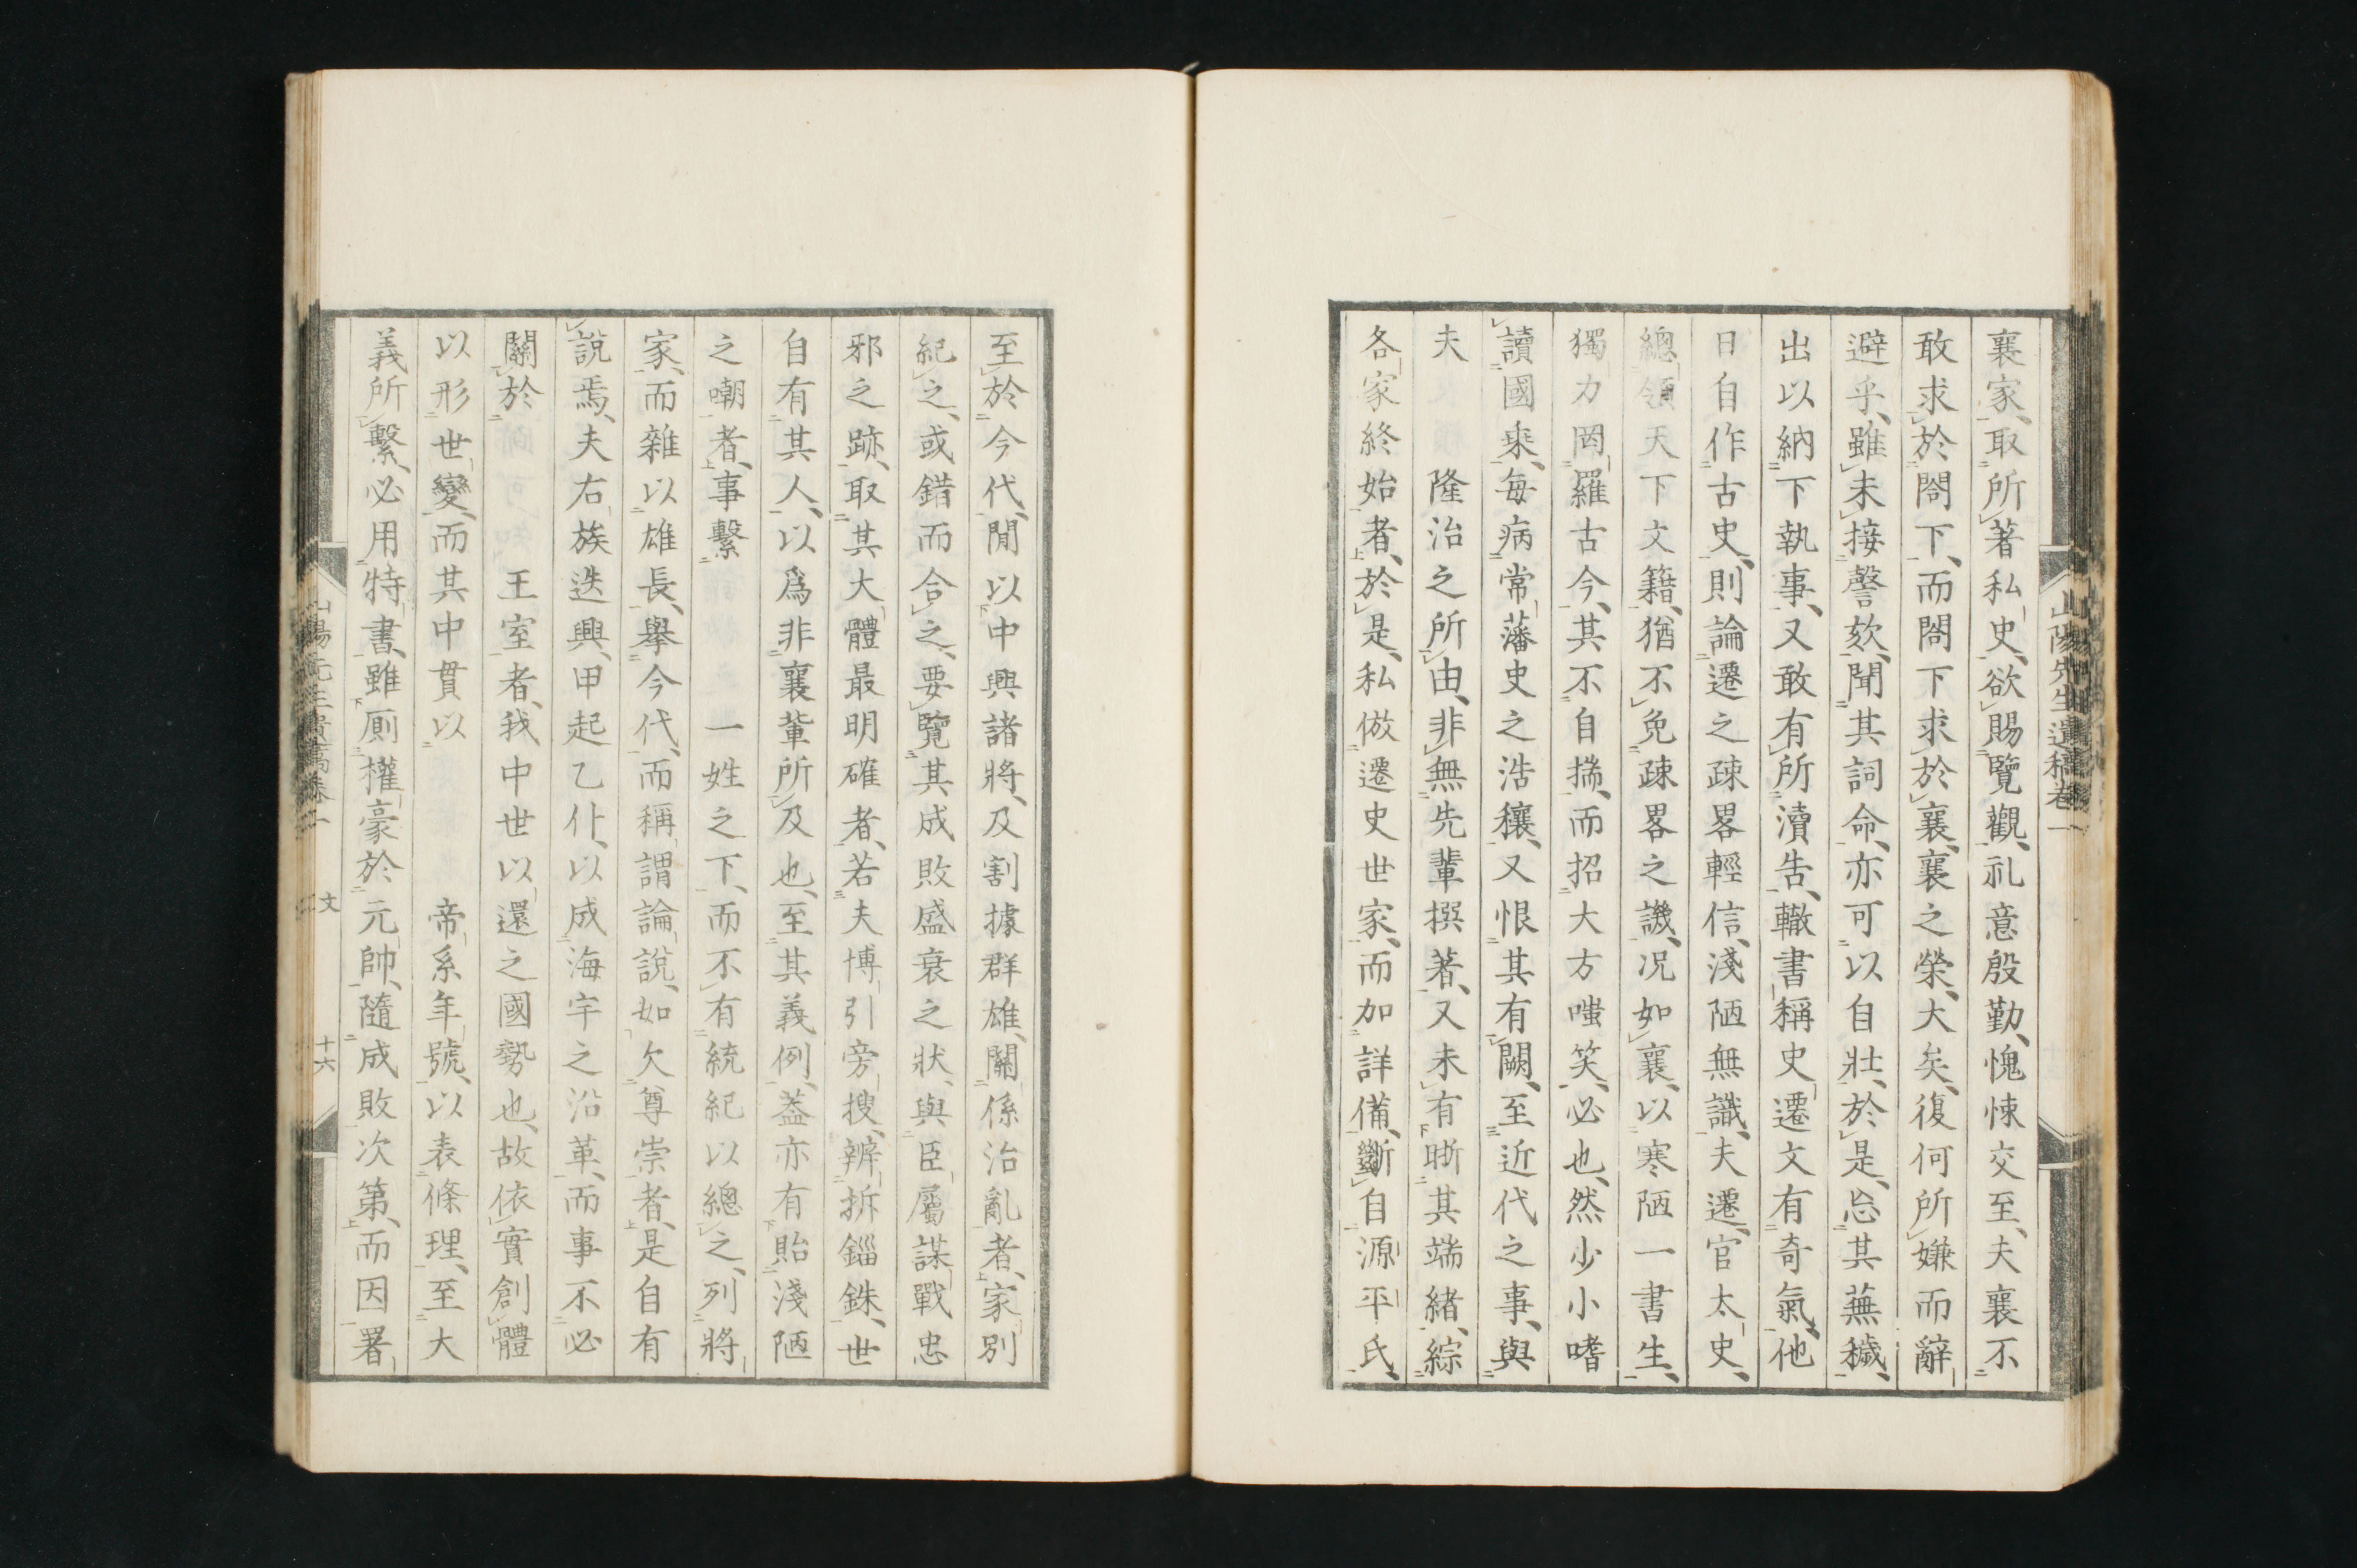 襄家、取所著私史、欲賜覽觀、礼意殷勤、愧悚交至、夫襄不
敢求於閤下、而閤下求於襄、襄之榮、大矣、復何所嫌而辭
避乎、雖未接謦欬、聞其詞命、亦可以自壯、於是、忘其蕪穢、
出以納下執事、又敢有所瀆告、轍書稱史遷文有奇氣、他
日自作古史、則論遷之疎畧輕信、淺陋無識、夫遷、官太史、
總領天下文籍、猶不免疎畧之譏、况如襄、以寒陋一書生、
獨力罔羅古今、其不自揣、而招大方嗤笑、必也、然少小嗜
讀國乘、每病常藩史之浩穰、又恨其有闕、至近代之事、與
夫　隆治之所由、非無先輩撰著、又未有晣其端緒、綜
各家終始者、於是、私倣遷史世家、而加詳備、斷自源平氏、
山陽先生遺稿卷一
至於今代、閒以中興諸將、及割據群雄、關係治亂者、家別
紀之、或錯而合之、要覽其成敗盛衰之狀、與臣屬謀戰忠
邪之跡、取其大體最明確者、若夫博引旁搜、辨拆錙銖、世
自有其人、以爲非襄輩所及也、至其義例、蓋亦有貽淺陋
之嘲者、事繫　一姓之下、而不有統紀以總之、列將
家、而雜以雄長、擧今代、而稱謂論說、如欠尊崇者、是自有
說焉、夫右族迭興、甲起乙仆、以成海宇之沿革、而事不必
關於　王室者、我中世以還之國勢也、故依實創體
以形世變、而其中貫以　帝系年號、以表條理、至大
義所繫、必用特書、雖厠權豪於元帥、隨成敗次第、而因署
文
十六